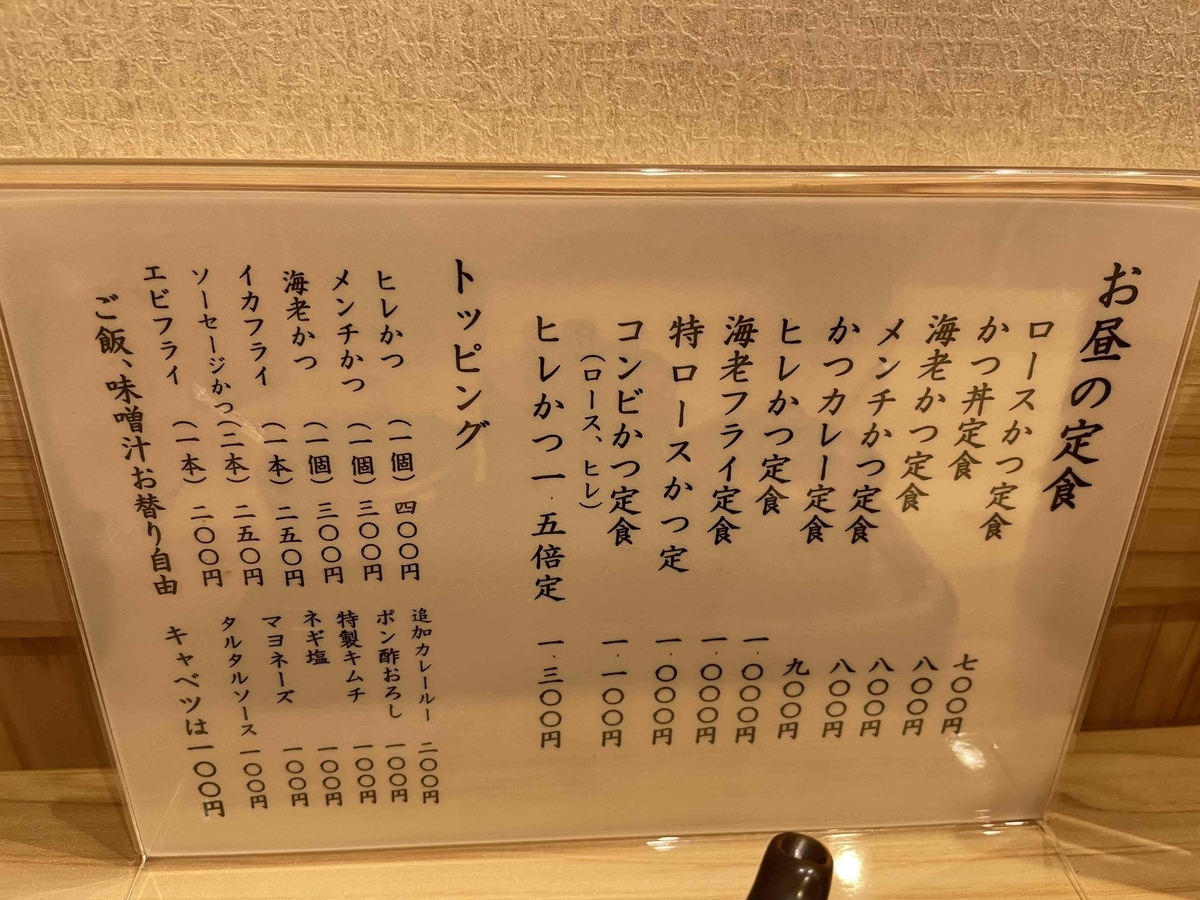 お昼の定食
ロースかつ定食 七〇〇円
かつ丼定食 八〇〇円
海老かつ定食 八〇〇円
メンチかつ定食 八〇〇円
かつカレー定食 九〇〇円
ヒレかつ定食 一.〇〇〇円
海老フライ定食 一.〇〇〇円
特ロースかつ定 一.〇〇〇円
コンビかつ定食 一.一〇〇円
（ロース、ヒレ）
ヒレかつ一.五倍定 一.三〇〇円
トッピング
ヒレかつ （一個） 四〇〇円
メンチかつ （一個） 三〇〇円
海老かつ （一個） 三〇〇円
イカフライ （一本） 二五〇円
ソーセージかつ （二本） 二五〇円
エビフライ （一本） 二〇〇円
追加カレールー 二〇〇円
ポン酢おろし 一〇〇円
特製キムチ 一〇〇円
ネギ塩 一〇〇円
マヨネーズ 一〇〇円
タルタルソース 一〇〇円
ご飯、味噌汁お替り自由 キャベツは一〇〇円